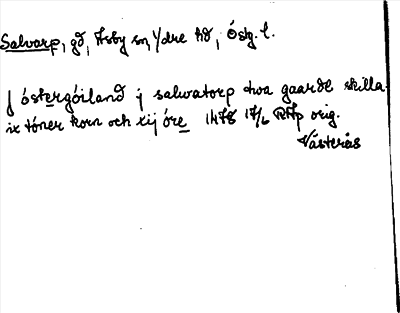 Salvarp, gd, Asby sn, Ydre hd, Östg. l.
J östergöiland j salvatorp twa gaarde skilla
ix töner korn och xij öre 1478 17/6 RAp orig.
Västerås